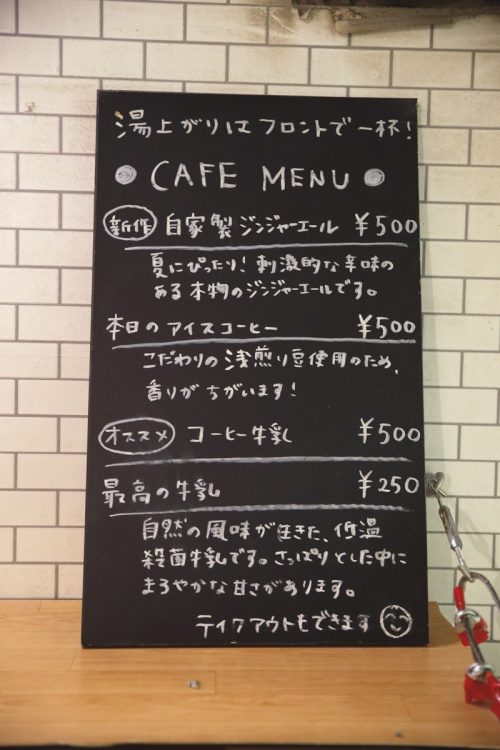 湯上がりはフロントで一杯!
CAFE MENU
新作 自家製ジンジャーエール ¥500
夏にぴったり!刺激的な辛味の
ある本物のジンジャーエールです。
本日のアイスコーヒー ¥500
こだわりの浅煎り豆使用のため、
香りがちがいます!
オススメ コーヒー牛乳 ¥500
最高の牛乳 ¥250
自然の風味が生きた、低温
殺菌牛乳です。さっぱりとした中に
まろやかな甘さがあります。
テイクアウトもできます